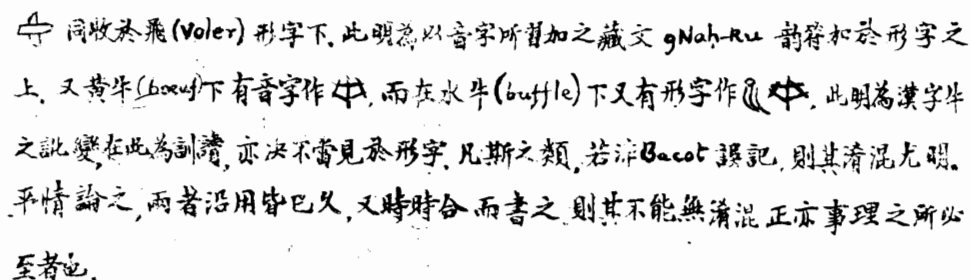 同收於飛(Voler)形字下.此明為以音字所習加之藏文gNah-Ru韵符加於形字之
上.又黃牛(boeuf)下有音字作,而在水牛(buffle)下又有形字作,此明為漢字牛
之訛變,在此為訓讀,亦決不當見於形字.凡斯之類,若非Bacot誤記,則其淆混尤明.
平情論之,兩者沿用皆已久,又時時合而書之,則其不能無淆混正亦事理之所必
至者也.